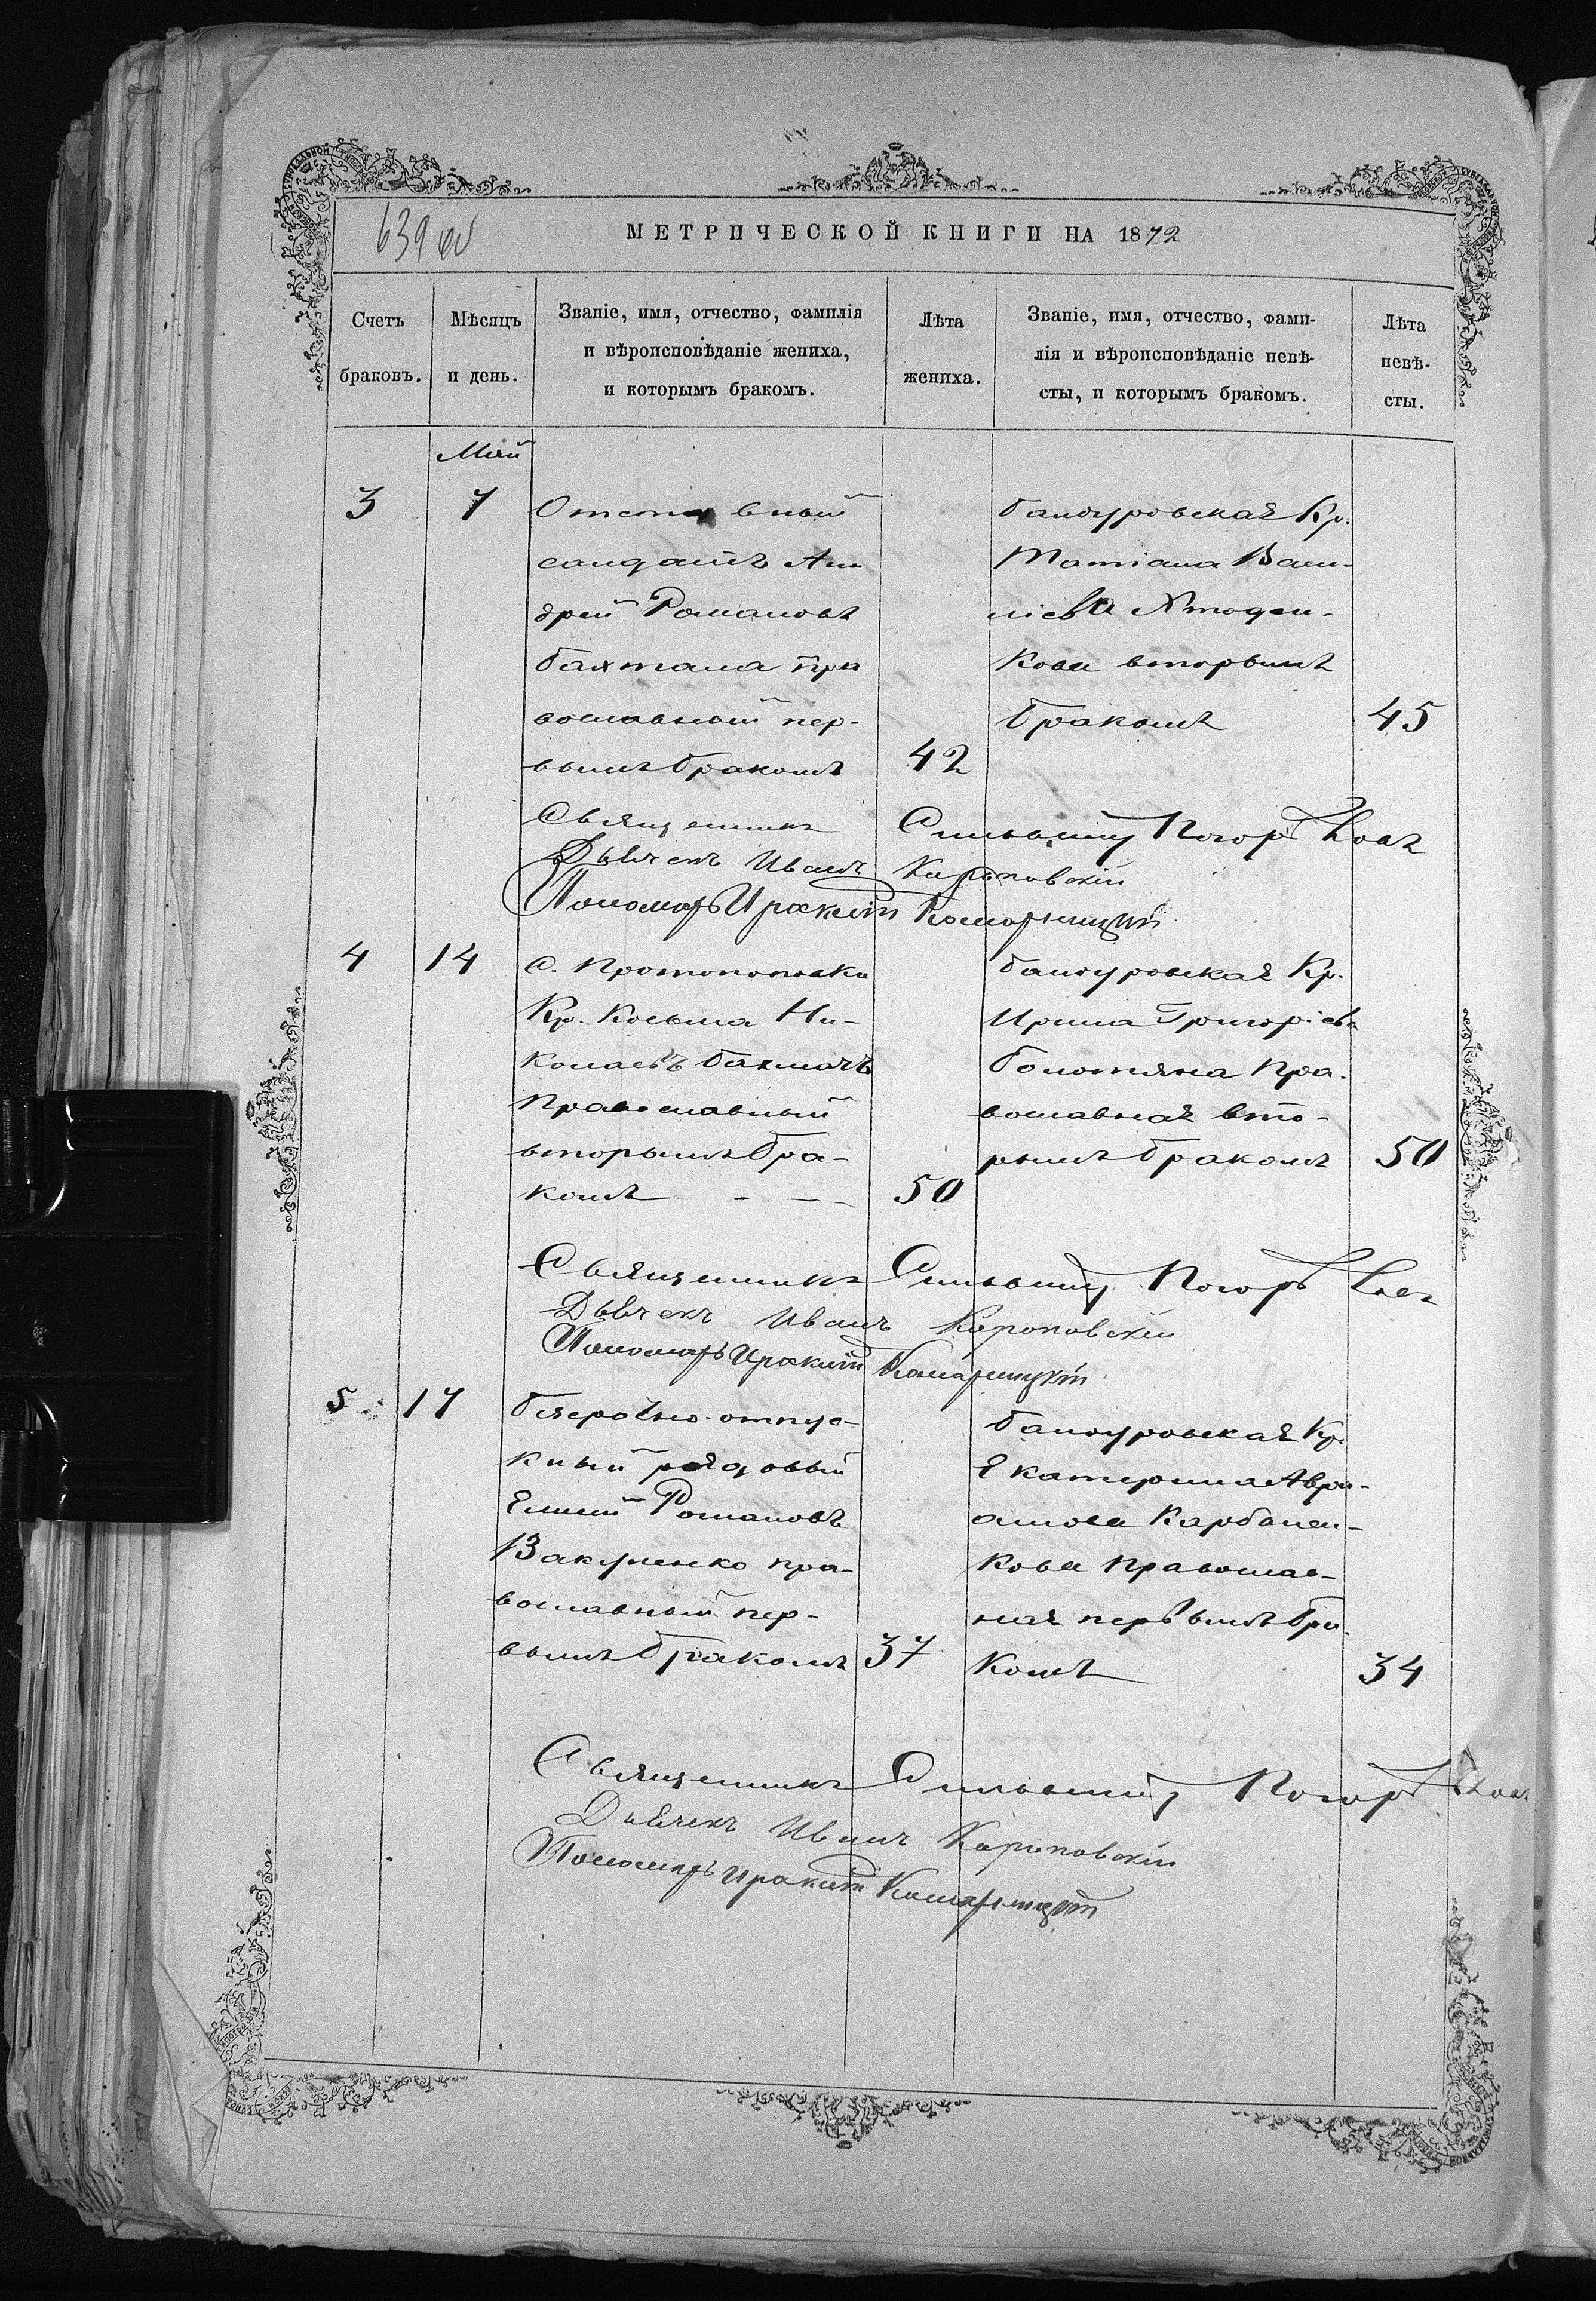 639 об
МЕТРИЧЕСКОЙ КНИГИ НА 1872
Счетъ браковъ.
Мѣсяцъ и день.
Званіе, имя, отчество, фамилія
и вѣроисповѣданіе жениха,
и которымъ бракомъ.
Лѣта жениха.
Званіе, имя, отчество, фами-
лія и вѣроисповѣданіе невѣ-
сты, и которымъ бракомъ.
Лѣта невѣ-
сты.
Май
3
7
Отставный
солдатъ Ан
дрей Романовъ
Бахтала пра
вославный пер-
вымъ бракомъ
42
Бандуровская Кр.
Татіана Васи-
ліева
кова вторымъ
бракомъ
45
Священникъ Сильвестр
Дьячекъ Иванъ Карповскій
Пономарь Ираклій Комарницкій
4
14
С. Протопоповки
Кр. Косьма Ни-
колаевъ Бахмачъ
православный
вторымъ бра-
комъ
50
Бандуровская Кр.
Ирина Григоріева
Болотяна пра-
вославная вто-
рымъ бракомъ
50
Священникъ Сильвестр
Дьячекъ Иванъ Карповскій
Пономарь Ираклій Комарницкій
5
17
Безсрочно-отпус-
кный рядовый
Елисей Романовъ
Вакуленко пра-
вославный пер-
вымъ бракомъ
37
Бандуровская Кр.
Екатерина Авра-
амова Карбален-
кова православ-
ная первымъ бра-
комъ
34
Священникъ Сильвестр
Дьячекъ Иванъ Карповскій
Пономарь Ираклій Комарницкій